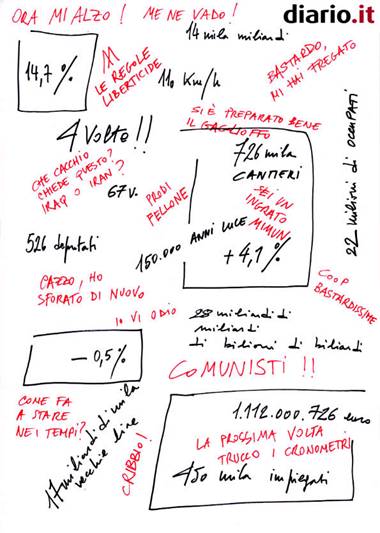 ORA MI ALZO! ME NE VADO!
diario.it
14 mila miliardi
14,7%
!!!
LE REGOLE
LIBERTICIDE
110 Km/h
BASTARDO,
MI HAI FREGATO
SI È PREPARATO BENE
IL GAGLIOFFO
4 Volte!!
726 mila
CANTIERI
CHE CACCHIO
CHIEDE QUESTO?
IRAQ O IRAN?
67 v.
PRODI
FELLONE
SEI UN
INGRATO
MIMUN
22 milioni di OCCUPATI
526 deputati
150.000 ANNI LUCE
+4,1%
CAZZO, HO
SFORATO DI NUOVO
COOP
BASTARDISSIME
IO VI ODIO
28 miliardi di
miliardi
di bilioni di biliardi
-0,5%
COMUNISTI!!
COME FA
A STARE
NEI TEMPI?
17 miliardi di mila
vecchie lire
CRIBBIO!
1.112.000.726 euro
LA PROSSIMA VOLTA
TRUCCO I CRONOMETRI
450 mila impiegati